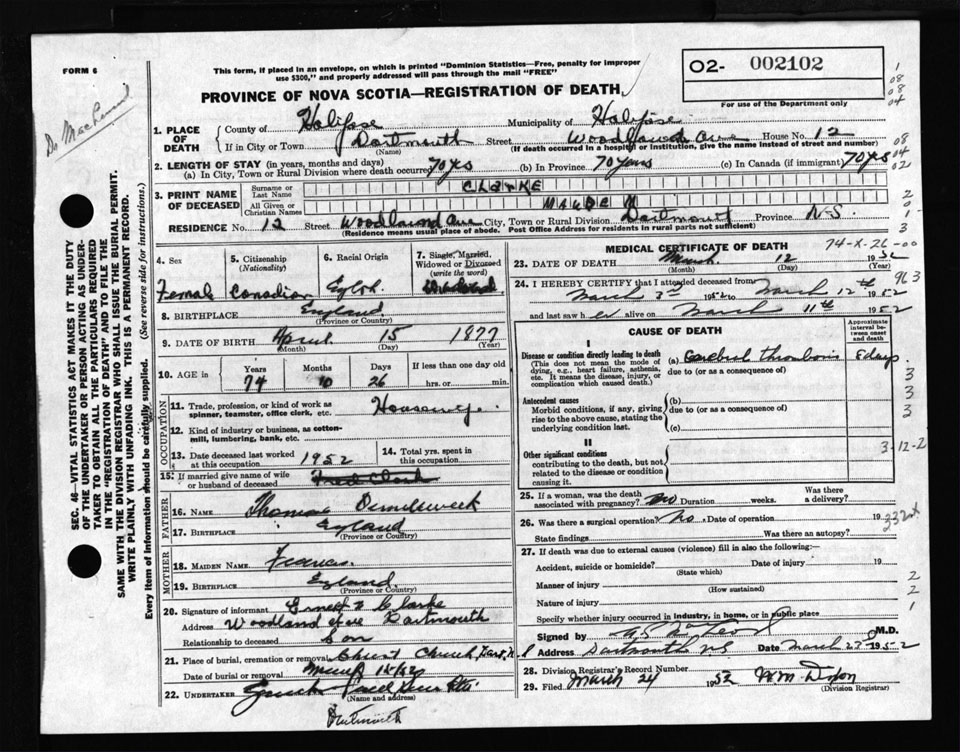 FORM 6
This form, if placed in an envelope, on which is printed "Dominion Statistics—Free, penalty for improper
use $300," and properly addressed will pass through the mail "FREE"
O2- 002102
For use of the Department only
PROVINCE OF NOVA SCOTIA—REGISTRATION OF DEATH
1. PLACE OF DEATH { County of Halifax Municipality of Halifax
If in City or Town Dartmouth (Name) Street Woodlawnd Ave House No. 12
(If death occurred in a hospital or institution, give the name instead of street and number)
2. LENGTH OF STAY (in years, months and days)
(a) In City, Town or Rural Division where death occurred 70 yrs (b) In Province 70 years (c) In Canada (if immigrant) 70 yrs
3. PRINT NAME OF DECEASED { Surname or Last Name CLARKE
All Given or Christian Names MAUDE
RESIDENCE No. 12 Street Woodlawnd Ave City, Town or Rural Division Dartmouth Province N-S.
(Residence means usual place of abode. Post Office Address for residents in rural parts not sufficient)
4. Sex
Female
5. Citizenship (Nationality)
Canadian
6. Racial Origin
Eglsh.
7. Single, Married, Widowed or Divorced (write the word)
8. BIRTHPLACE England
(Province or Country)
9. DATE OF BIRTH April 15 1877
(Month) (Day) (Year)
10. AGE in Years 74 Months 10 Days 26 If less than one day old hrs. or min.
OCCUPATION
11. Trade, profession, or kind of work as spinner, teamster, office clerk, etc. Housewife.
12. Kind of industry or business, as cotton-mill, lumbering, bank, etc.
13. Date deceased last worked at this occupation 1952
14. Total yrs. spent in this occupation
15. If married give name of wife or husband of deceased Fred Clark
FATHER
16. NAME Thomas
17. BIRTHPLACE England
(Province or Country)
MOTHER
18. MAIDEN NAME Frances.
19. BIRTHPLACE England.
(Province or Country)
20. Signature of informant Ernest Clarke
Address Woodland Ave Dartmouth
Relationship to deceased Son
21. Place of burial, cremation or removal Christ Church
Date of burial or removal
22. UNDERTAKER
(Name and address)
Dartmouth
MEDICAL CERTIFICATE OF DEATH
74-X-26-00
23. DATE OF DEATH March 12 1952
(Month) (Day)
24. I HEREBY CERTIFY that I attended deceased from
March 3rd 1952 to March 12th 1952
and last saw her alive on March 11th 1952
CAUSE OF DEATH
Approximate interval between onset and death
I
Disease or condition directly leading to death (a) Cerebral thrombosis 8 days
(This does not mean the mode of dying, e.g., heart failure, asthenia, etc. It means the disease, injury, or complication which caused death.)
due to (or as a consequence of)
Antecedent causes
Morbid conditions, if any, giving rise to the above cause, stating the underlying condition last.
(b)
due to (or as a consequence of)
(c)
II
Other significant conditions
contributing to the death, but not related to the disease or condition causing it.
3-12-2
25. If a woman, was the death associated with pregnancy? no Duration weeks. Was there delivery?
26. Was there a surgical operation? No. Date of operation 19
State findings Was there an autopsy?
27. If death was due to external causes (violence) fill in also the following:—
Accident, suicide or homicide? Date of injury 19
(State which)
Manner of injury
(How sustained)
Nature of injury
Specify whether injury occurred in industry, in home, or in public place
Signed by M.D.
Address Dartmouth NS Date March 23rd 1952
28. Division Registrar's Record Number
29. Filed March 24 1952
(Division Registrar)
SEC. 46—VITAL STATISTICS ACT MAKES IT THE DUTY
OF THE UNDERTAKER OR PERSON ACTING AS UNDER-
TAKER TO OBTAIN ALL THE PARTICULARS REQUIRED
IN THE "REGISTRATION OF DEATH" AND TO FILE THE
SAME WITH THE DIVISION REGISTRAR WHO SHALL ISSUE THE BURIAL PERMIT.
WRITE PLAINLY WITH UNFADING INK. THIS IS A PERMANENT RECORD.
Every item of information should be carefully supplied. (See reverse side for instructions.)